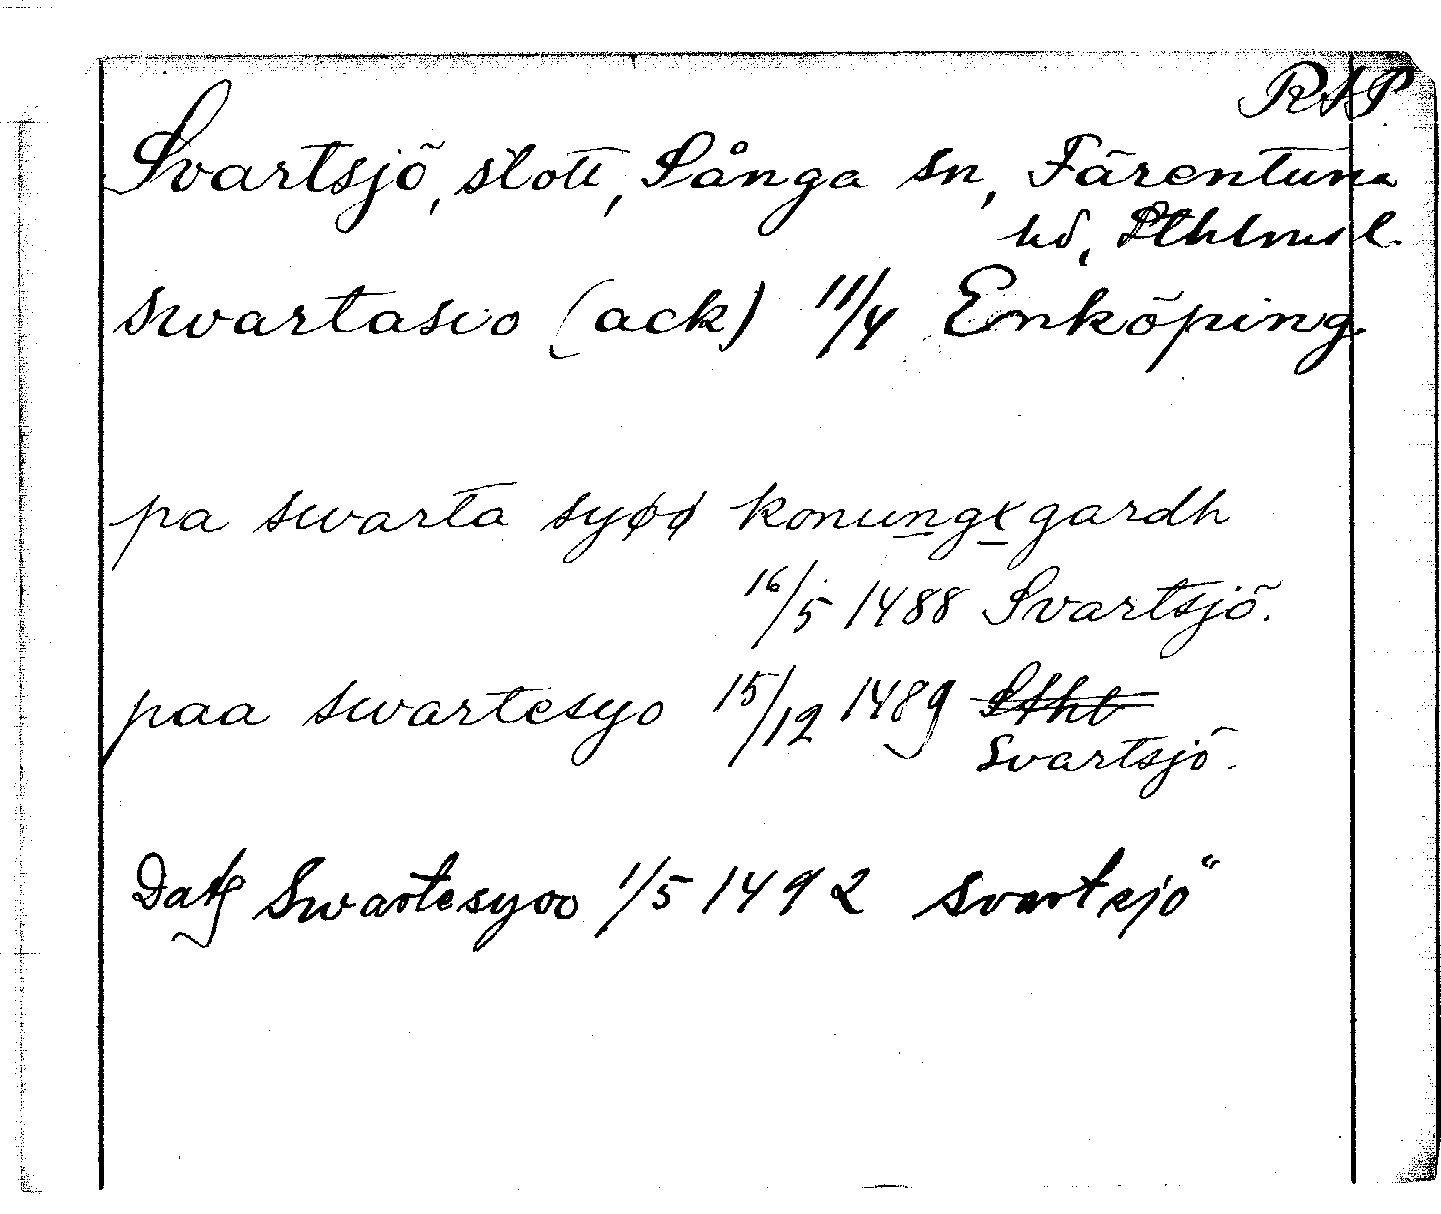 RAP
Svartsjö, slott, Sånga sn, Färentuna
hd, Sthlms l.
swartasio (ack) 11/4 Enköping.
pa swarta syøø konungx gardh
16/5 1488 Svartsjö.
paa swartesyo 15/12 1489 Sthl
Svartsjö.
Swartesyoo 1/5 1492 Svartsjö